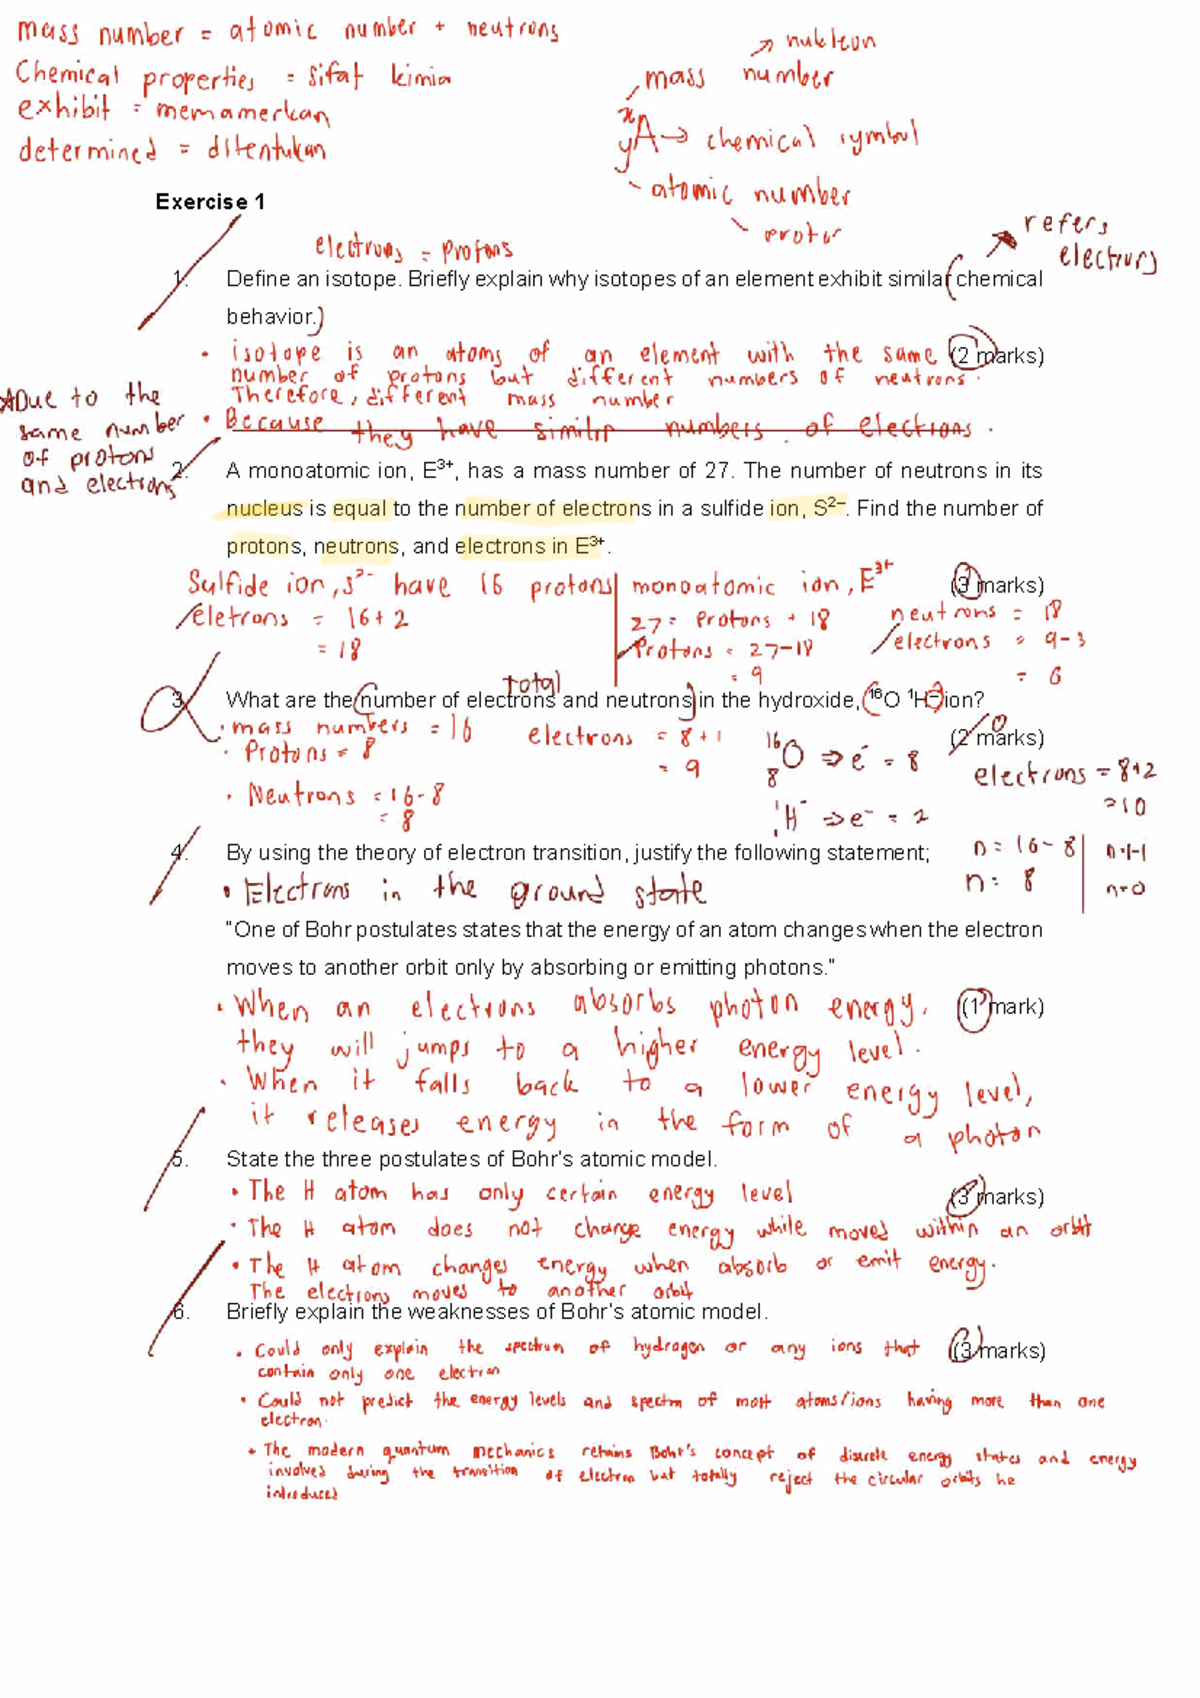 mass number = atomic number + neutrons
Chemical properties = sifat kimia
exhibit = memamerkan
determined = ditentukan
nukleon
mass number
x
y A → chemical symbol
atomic number
Exercise 1
refers
electrons = Protons
1. Define an isotope. Briefly explain why isotopes of an element exhibit similar chemical
behavior.
(2 marks)
• isotope is an atoms of an element with the same
number of protons but different numbers of neutrons.
Therefore, different mass number
• Because they have similir numbers of electrons.
★Due to the
same number
of protons
and electrons
2. A monoatomic ion, E³⁺, has a mass number of 27. The number of neutrons in its
nucleus is equal to the number of electrons in a sulfide ion, S²⁻. Find the number of
protons, neutrons, and electrons in E³⁺.
(3 marks)
Sulfide ion, s²⁻ have 16 protons
eletrons = 16+2
= 18
monoatomic ion, E³⁺
27 = Protons + 18
Protons = 27-18
= 9
neutrons = 18
electrons = 9-3
= 6
total
3. What are the number of electrons and neutrons in the hydroxide, ¹⁶O ¹H⁻ ion?
(2 marks)
• mass numbers = 16
• Protons = 8
• Neutrons = 16-8
= 8
electrons = 8+1
= 9
¹⁶₈O ⇒ e⁻ = 8
¹₁H⁻ ⇒ e⁻ = 2
electrons = 8+2
= 10
n = 16-8
n = 8
n=1-1
n=0
4. By using the theory of electron transition, justify the following statement;
• Electrons in the ground state
"One of Bohr postulates states that the energy of an atom changes when the electron
moves to another orbit only by absorbing or emitting photons."
(1 mark)
• When an electrons absorbs photon energy,
they will jumps to a higher energy level.
• When it falls back to a lower energy level,
it releases energy in the form of a photon
5. State the three postulates of Bohr's atomic model.
(3 marks)
• The H atom has only certain energy level
• The H atom does not change energy while moved within an orbit
• The H atom changes energy when absorb or emit energy.
The electrons moves to another orbit
6. Briefly explain the weaknesses of Bohr's atomic model.
(3 marks)
• Could only explain the spectrum of hydrogen or any ions that
contain only one electron
• Could not predict the energy levels and spectra of most atoms/ions having more than one
electron.
• The modern quantum mechanics retains Bohr's concept of discrete energy states and energy
involved during the transition of electron but totally reject the circular orbits he
introduced